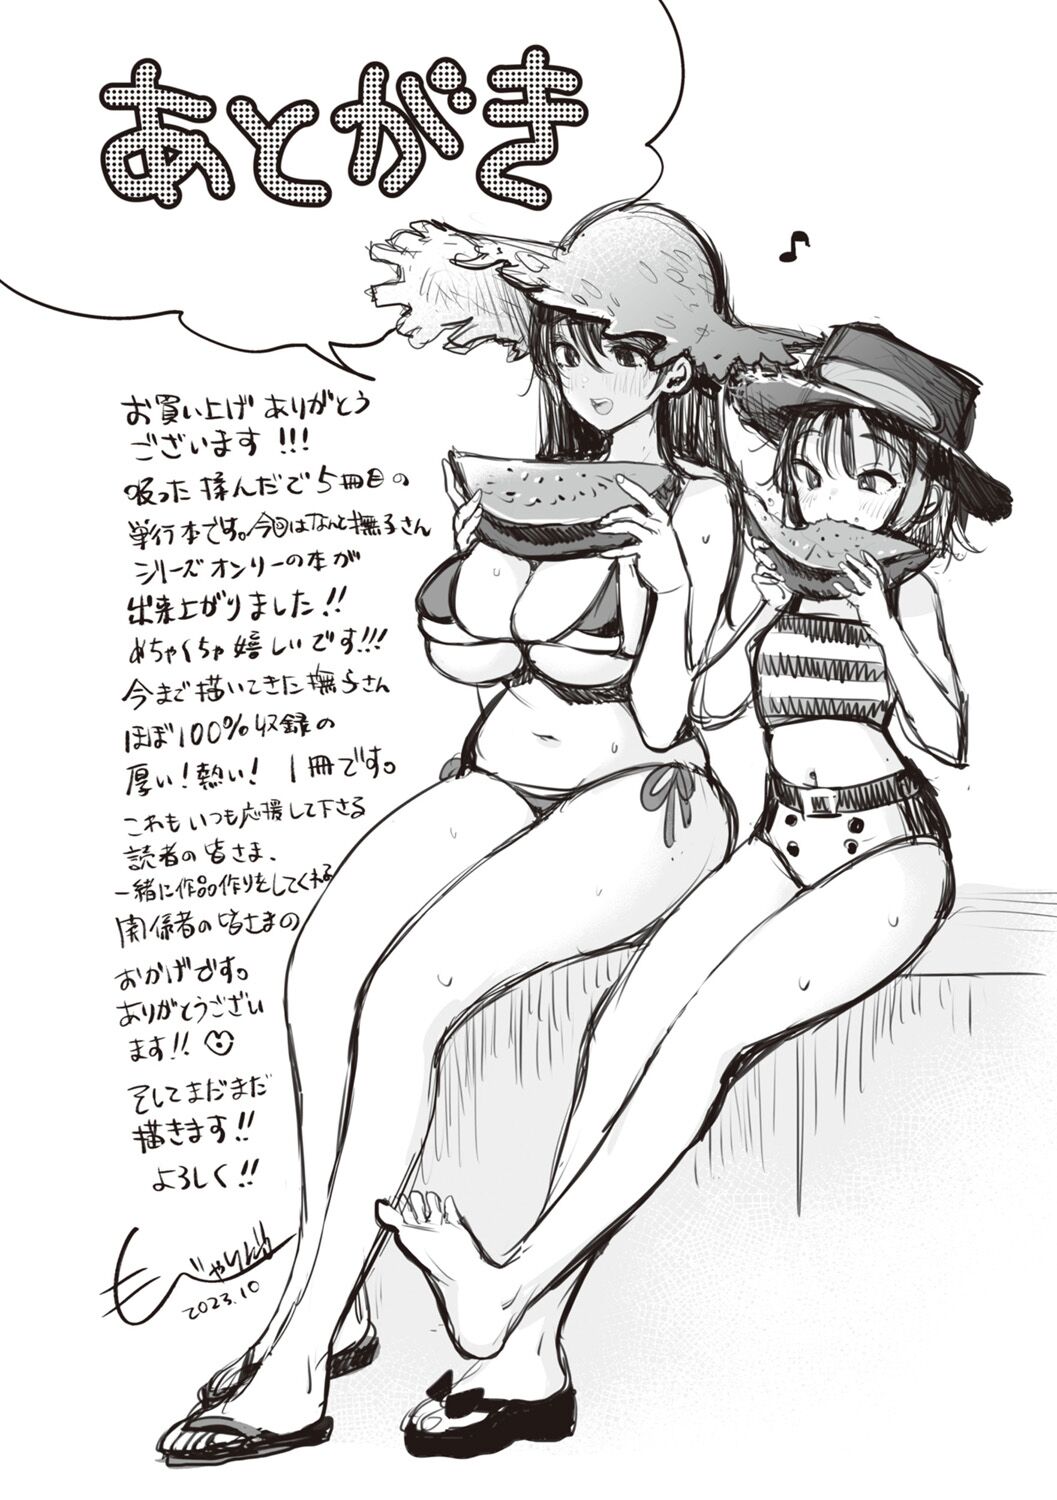 あとがき
お買い上げ ありがとう
ございます!!!
吸った揉んだで5冊目の
単行本です。今回はなんと撫子さん
シリーズオンリーの本が
出来上がりました!!
めちゃくちゃ嬉しいです!!!
今まで描いてきた撫子さん
ほぼ100%収録の
厚い!熱い! 1冊です。
これもいつも応援して下さる
読者の皆さま、
一緒に作品作りをしてくれる
関係者の皆さまの
おかげです。
ありがとうござい
ます!!
そしてまだまだ
描きます!!
よろしく!!
2023.10